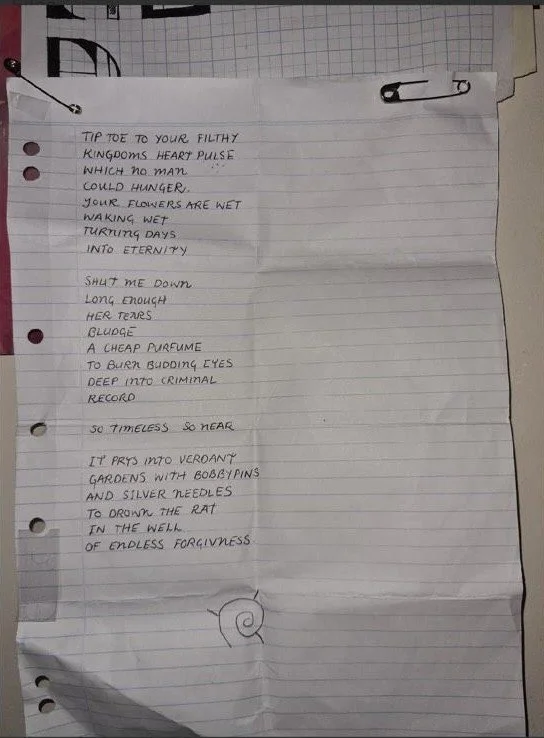 TIP TOE TO YOUR FILTHY
KINGDOMS HEART PULSE
WHICH NO MAN
COULD HUNGER.
YOUR FLOWERS ARE WET
WAKING WET
TURNING DAYS
INTO ETERNITY
SHUT ME DOWN
LONG ENOUGH
HER TEARS
BLUDGE
A CHEAP PURFUME
TO BURN BUDDING EYES
DEEP INTO CRIMINAL
RECORD
SO TIMELESS SO NEAR
IT PRYS INTO VERDANT
GARDENS WITH BOBBYPINS
AND SILVER NEEDLES
TO DROWN THE RAT
IN THE WELL
OF ENDLESS FORGIVNESS.